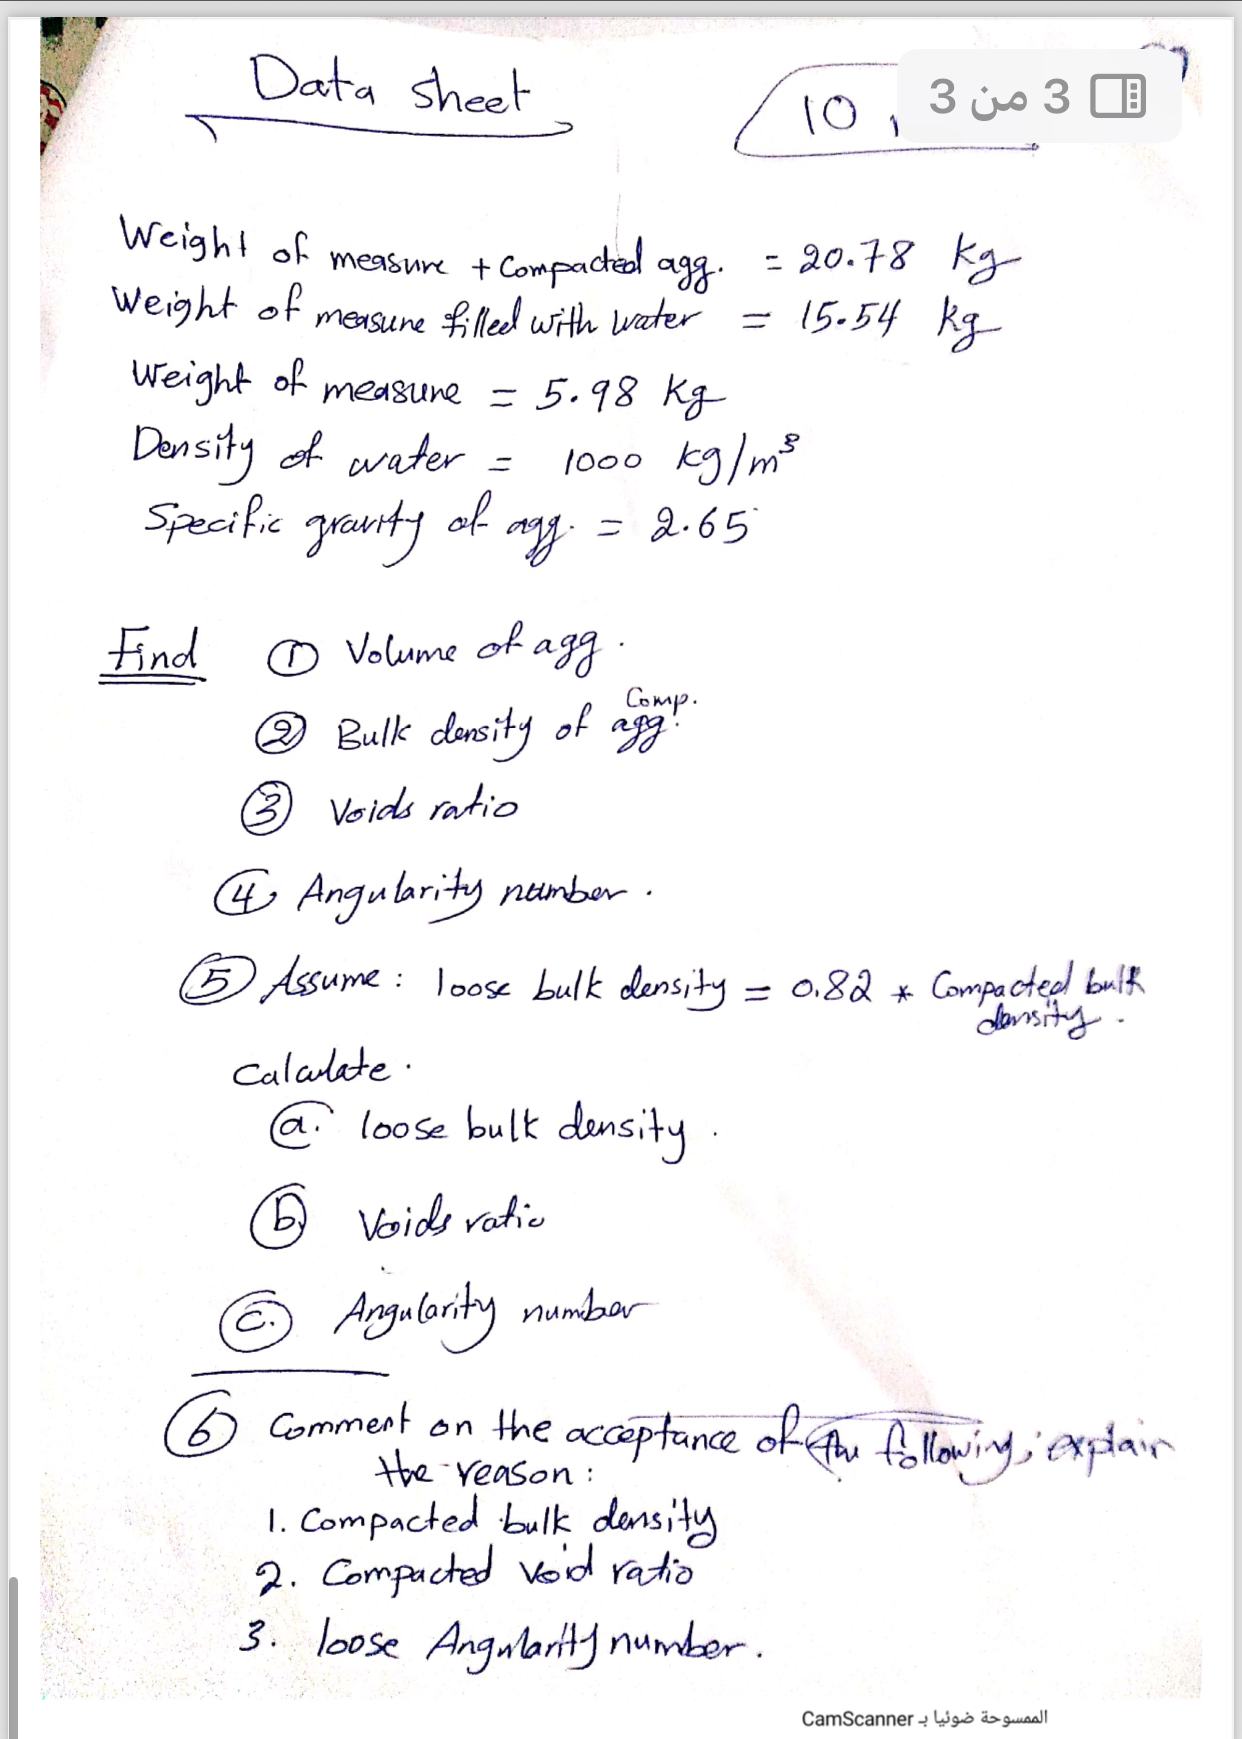 Data sheet
10
3 من 3
Weight of measure + Compacted agg. = 20.78 kg
Weight of measure filled with water = 15.54 kg
Weight of measure = 5.98 kg
Density of water = 1000 kg/m³
Specific gravity of agg. = 2.65
Find ① Volume of agg.
Comp.
② Bulk density of agg.
③ Voids ratio
④ Angularity number.
⑤ Assume: loose bulk density = 0.82 * Compacted bulk
density.
Calculate.
ⓐ. loose bulk density.
ⓑ Voids ratio
ⓒ. Angularity number
⑥ Comment on the acceptance of the following, explain
the reason:
1. Compacted bulk density
2. Compacted void ratio
3. loose Angularity number.
الممسوحة ضوئيا بـ CamScanner